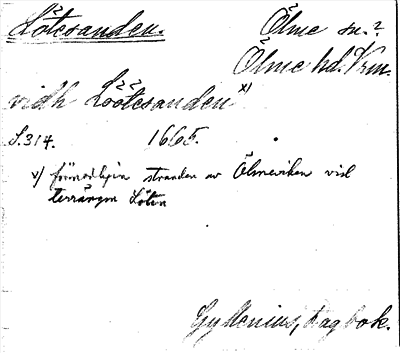 Lötesanden.
Ölme sn.?
Ölme hd. Vrm.
vidh Löötesanden x)
S. 314. 1665.
x) förmodligen stranden av Ölmeviken vid
terrängen Löten
Gyllenius, dagbok.